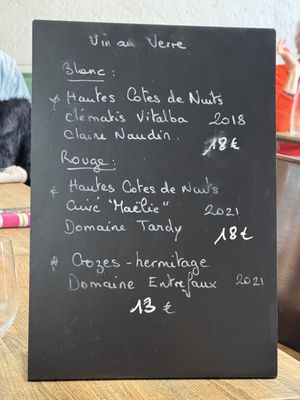 Vin au Verre
Blanc :
* Hautes Cotes de Nuits
Clématis Vitalba 2018
Claire Naudin. 18 €
Rouge :
* Hautes Cotes de Nuits
Cuvé "Maëlie" 2021
Domaine Tardy 18 €
* Crozes-hermitage
Domaine Entrefaux 2021
13 €